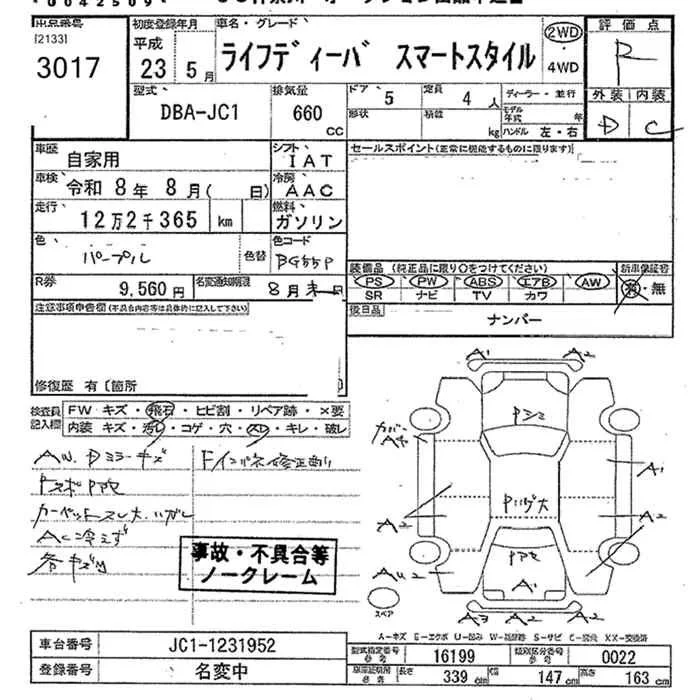 00042509
出品番号 初度登録年月 車名・グレード 評価点
[2133] 平成 ライフディーバ スマートスタイル 2WD R
3017 23年 5月 ・4WD
型式 排気量 ドア 定員 ディーラー・並行 外装 内装
DBA-JC1 660 5 4人 モデル年式 年 D C
cc 形状 積載 kg ハンドル 左・右
車歴 自家用 シフト IAT セールスポイント(正常に機能するものに限ります)
車検 令和 8年 8月( 日) 冷房 AAC
走行 12万2千365 km 燃料 ガソリン
色 パープル 色替 色コード BG55P
装備品 (純正品に限り〇をつけてください) 新車保証書
R券 9,560円 名変通知期限 8月末日 PS PW ABS エアB AW 有・無
SR ナビ TV カワ
注意事項申告欄(不具合内容等は具体的に記入して下さい) 後日品 ナンバー
修復歴 有〔箇所
検査員記入欄 FW キズ・飛石・ヒビ割・リペア跡・×要
内装 キズ・汚レ・コゲ・穴・スレ・キレ・破レ
AW、Dミラーキズ Fインパネ修正あり
カーペットスレ大、ハガレ
AC冷えず
各キズ凹
事故・不具合等
ノークレーム
A1 A2
Pシミ
カバーA4
A1
Pハゲ大
A2 A2
AU2
A1
スペア
A3 A2 A2
A-キズ E-エクボ U-凹み W-補修跡 S-サビ C-腐食 XX-交換済
車台番号 JC1-1231952 型式指定番号 参考 16199 類別区分番号 参考 0022
登録番号 名変中 車庫証明用 参考 長さ 339cm 幅 147cm 高さ 163cm